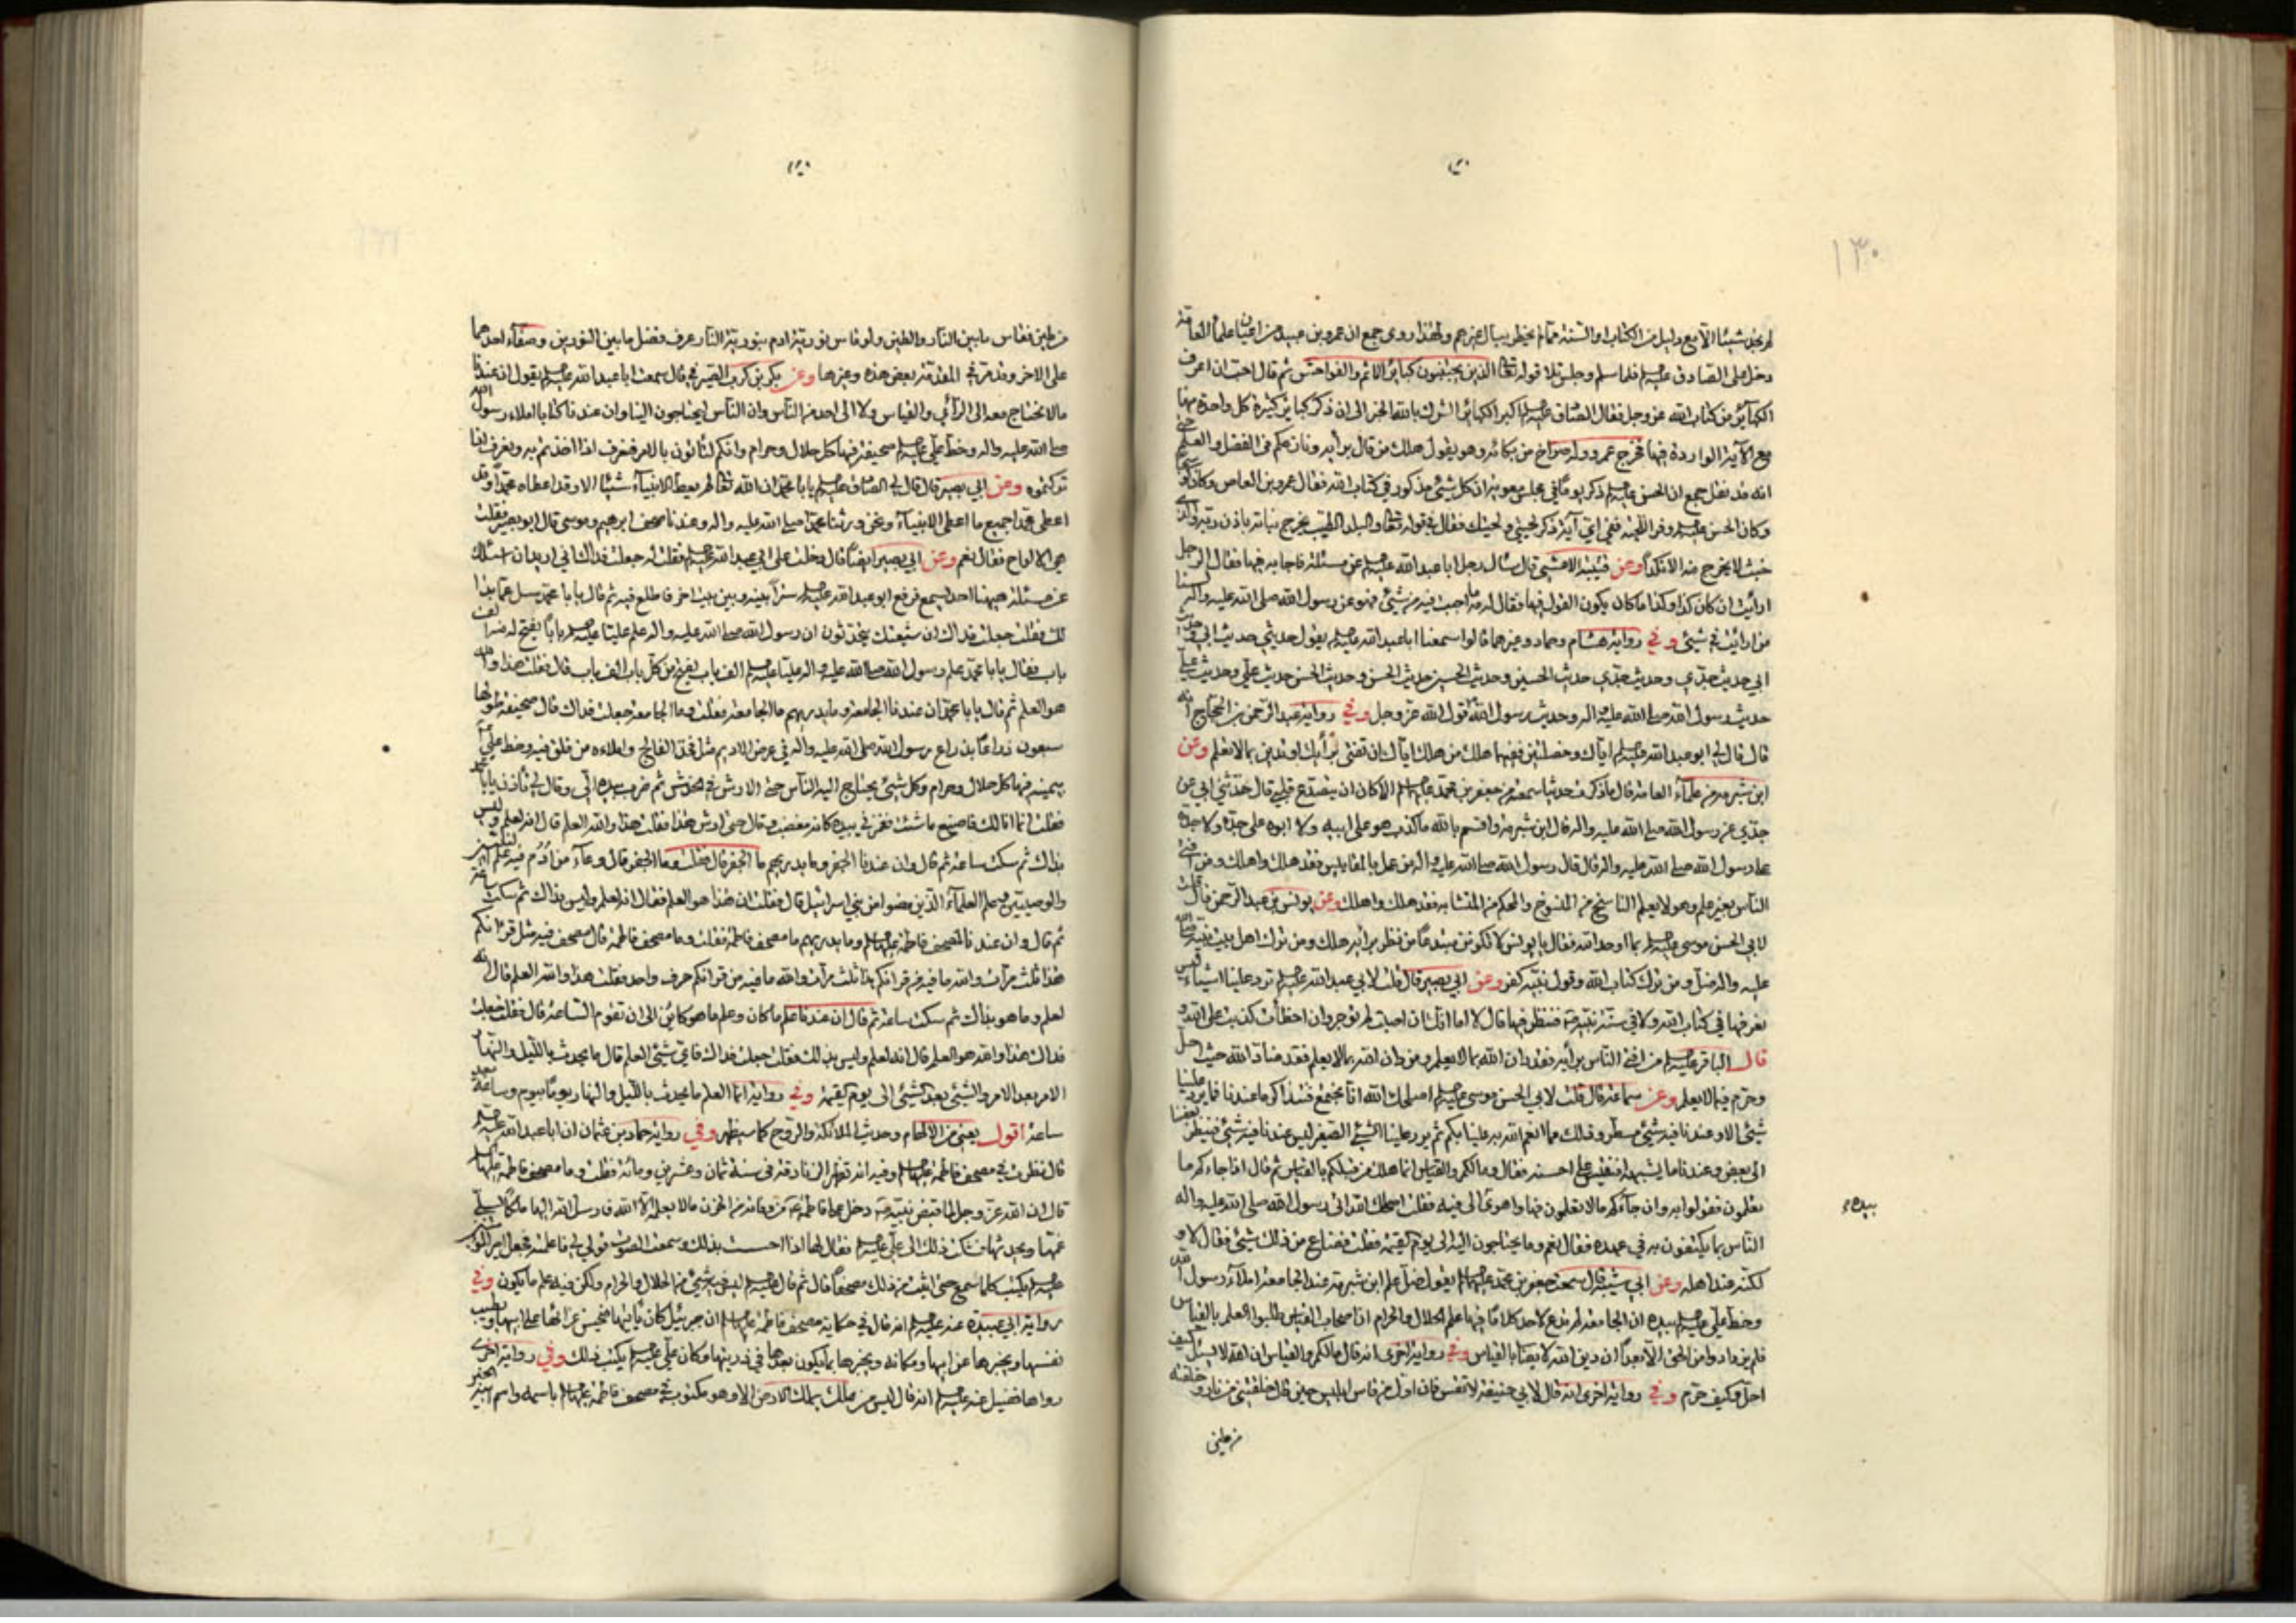 ١٣٠
لم نجد شيئا الا مع دليل من الكتاب والسنة مما لم يخطر ببال غيرهم ولهذا روى جمع ان عمرو بن عبيد من علماء العامة
دخل على الصادق عليه السلام فلما سلم وجلس تلا قوله تعالى الذين يجتنبون كبائر الاثم والفواحش ثم قال احب ان اعرف
الكبائر من كتاب الله عز وجل فقال الصادق عليه السلام اكبر الكبائر الشرك بالله الخبر الى ان ذكر كبائر كثيرة كل واحدة منها
مع الآية الواردة فيها فخرج عمرو وله صراخ من بكائه وهو يقول هلك من قال برأيه ونازعكم في الفضل والعلم
انه قد نقل جمع ان الحسن عليه السلام ذكر يوما في مجلس معوية ان كل شئ مذكور في كتاب الله فقال عمرو بن العاص
وكان الحسن عليه السلام وفر اللحية ففي اي آية ذكر لحيتي ولحيتك فقال في قوله تعالى والبلد الطيب يخرج نباته باذن ربه والذي
خبث لا يخرج منه الا نكدا وعن قتيبة الاعشى قال سأل رجل ابا عبد الله عليه السلام عن مسئلة فاجابه فيها فقال الرجل
ارأيت ان كان كذا وكذا ما كان يكون القول فيها فقال له مه ما اجبت فيه من شئ فهو عن رسول الله صلى الله عليه واله لسنا
من ارأيت في شئ وفي رواية هشام وحماد وغيرهما قالوا سمعنا ابا عبد الله عليه السلام يقول حديثي حديث ابي وحديث
ابي حديث جدي وحديث جدي حديث الحسين وحديث الحسين حديث الحسن وحديث الحسن حديث علي وحديث علي
حديث رسول الله صلى الله عليه واله وحديث رسول الله قول الله عز وجل وفي رواية عبد الرحمن بن الحجاج انه
قال قال لي ابو عبد الله عليه السلام اياك وخصلتين ففيهما هلك من هلك اياك ان تفتي برأيك او تدين بما لا تعلم وعن
ابن شبرمة من علماء العامة قال ما ذكرت حديثا سمعته من جعفر بن محمد عليه السلام الا كاد ان يتصدع قلبي قال حدثني ابي عن
جدي عن رسول الله صلى الله عليه واله قال ابن شبرمة واقسم بالله ما كذب هو على ابيه ولا ابوه على جده ولا جده
على رسول الله صلى الله عليه واله قال قال رسول الله صلى الله عليه واله من عمل بالمقاييس فقد هلك واهلك ومن افتى
الناس بغير علم وهو لا يعلم الناسخ من المنسوخ والمحكم من المتشابه فقد هلك واهلك وعن يونس بن عبد الرحمن قال قلت
لابي الحسن موسى عليه السلام بما اوحد الله فقال يا يونس لا تكونن مبتدعا من نظر برأيه هلك ومن ترك اهل بيت نبيه صلى الله
عليه واله ضل ومن ترك كتاب الله وقول نبيه كفر وعن ابي بصير قال قلت لابي عبد الله عليه السلام ترد علينا اشياء ليس
نعرفها في كتاب الله ولا في سنة نبيه فننظر فيها قال لا اما انك ان اصبت لم توجر وان اخطأت كذبت على الله و
قال الباقر عليه السلام من افتى الناس برأيه فقد دان الله بما لا يعلم ومن دان الله بما لا يعلم فقد ضاد الله حيث احل
وحرم فيما لا يعلم وعن سماعة قال قلت لابي الحسن موسى عليه السلام اصلحك الله انا نجتمع فنتذاكر ما عندنا فما يرد علينا
شئ الا وعندنا فيه شئ مسطر وذلك مما انعم الله به علينا بكم ثم يرد علينا الشئ الصغير ليس عندنا فيه شئ فينظر بعضنا
الى بعض وعندنا ما يشبهه افنقيس على احسنه فقال وما لكم والقياس انما هلك من قبلكم بالقياس ثم قال اذا جاءكم ما
تعلمون فقولوا به وان جاءكم ما لا تعلمون فها واهوى الى فيه فقلت اصلحك الله اتى رسول الله صلى الله عليه واله
الناس بما يكتفون به في عهده فقال نعم وما يحتاجون اليه الى يوم القيمة فقلت فضاع من ذلك شئ فقال لا و
لكنه عند اهله وعن ابي شيبة قال سمعت جعفر بن محمد عليهما السلام يقول ضل علم ابن شبرمة عند الجامعة املاء رسول الله
وخط علي عليه السلام بيده ان الجامعة لم تدع لاحد كلاما فيها علم الحلال والحرام ان اصحاب القياس طلبوا العلم بالقياس
فلم يزدادوا من الحق الا بعدا ان دين الله لا يصاب بالقياس وفي رواية اخرى انه قال مالكم والقياس ان الله لا يسئل كيف
احل وكيف حرم وفي رواية اخرى انه قال لابي حنيفة لا تقس فان اول من قاس ابليس حين قال خلقتني من نار وخلقته
من طين
بيده
من طين فقاس ما بين النار والطين ولو قاس نورية ادم بنورية النار عرف فضل ما بين النورين وصفاء احدهما
على الاخر وعن بكر بن كرب الصيرفي قال سمعت ابا عبد الله عليه السلام يقول ان عندنا
ما لا نحتاج معه الى الرأي والقياس ولا الى احد من الناس وان الناس ليحتاجون الينا وان عندنا كتابا املاء رسول الله
صلى الله عليه واله وخط علي عليه السلام صحيفة فيها كل حلال وحرام وانكم لتأتون بالامر فنعرف اذا اخذتم به ونعرف اذا
تركتموه وعن ابي بصير قال قال لي الصادق عليه السلام يا با محمد ان الله تعالى لم يعط الانبياء شيئا الا وقد اعطاه محمدا وقد
اعطى محمدا جميع ما اعطى الانبياء ونحن ورثنا محمدا صلى الله عليه واله وعندنا صحف ابرهيم وموسى قال ابو بصير فقلت
هي الالواح فقال نعم وعن ابي بصير ايضا قال دخلت على ابي عبد الله عليه السلام فقلت له جعلت فداك اني اريد ان اسئلك
عن مسئلة ههنا احد يسمع فرفع ابو عبد الله عليه السلام سترا بينه وبين بيت اخر فاطلع فيه ثم قال يا با محمد سل عما بدا
لك فقلت جعلت فداك ان شيعتك يتحدثون ان رسول الله صلى الله عليه واله علم عليا عليه السلام بابا يفتح له منه الف
باب فقال يا با محمد علم رسول الله صلى الله عليه واله عليا عليه السلام الف باب يفتح من كل باب الف باب قال فقلت هذا والله
هو العلم ثم قال يا با محمد ان عندنا الجامعة وما يدريهم ما الجامعة فقلت وما الجامعة جعلت فداك قال صحيفة طولها
سبعون ذراعا بذراع رسول الله صلى الله عليه واله في عرض الاديم مثل فخذ الفالج واملاءه من فلق فيه وخط علي
بيمينه فيها كل حلال وحرام وكل شئ يحتاج اليه الناس حتى الارش في الخدش ثم ضرب بيده الي وقال لي تأذن يا با محمد
فقلت انما انا لك فاصنع ما شئت فغمزني بيده كانه مغضب وقال حتى ارش هذا فقلت هذا والله العلم قال انه لعلم وليس
بذاك ثم سكت ساعة ثم قال وان عندنا الجفر وما يدريهم ما الجفر قال فقلت وما الجفر قال وعاء من ادم فيه علم النبيين
والوصيين وعلم العلماء الذين مضوا من بني اسرائيل قال فقلت ان هذا هو العلم فقال انه لعلم وليس بذاك ثم سكت ساعة
ثم قال وان عندنا لمصحف فاطمة عليها السلام وما يدريهم ما مصحف فاطمة فقلت وما مصحف فاطمة قال مصحف فيه مثل قرانكم
هذا ثلث مرات والله ما فيه من قرانكم حرف واحد فقلت هذا والله العلم قال انه
لعلم وما هو بذاك ثم سكت ساعة ثم قال ان عندنا علم ما كان وعلم ما هو كائن الى ان تقوم الساعة قال فقلت جعلت
فداك هذا والله هو العلم قال انه لعلم وليس بذلك فقلت جعلت فداك فاي شئ العلم قال ما يحدث بالليل والنهار
الامر بعد الامر والشئ بعد الشئ الى يوم القيمة وفي رواية انما العلم ما يحدث بالليل والنهار يوما بيوم وساعة
ساعة اقول يعني من الالهام وحديث الملائكة والروح كما سيظهر وفي رواية حماد بن عثمان ان ابا عبد الله عليه السلام
قال نظرت في مصحف فاطمة عليها السلام وفيه انه تظهر الزنادقة في سنة ثمان وعشرين ومائة فقلت وما مصحف فاطمة عليها السلام
قال ان الله عز وجل لما قبض نبيه دخل على فاطمة من وفاته من الحزن ما لا يعلمه الا الله فارسل الله اليها ملكا يسلي
غمها ويحدثها فشكت ذلك الى علي عليه السلام فقال لها اذا احسست بذلك وسمعت الصوت قولي لي فاعلمته فجعل امير المؤمنين
عليه السلام يكتب كلما سمع حتى اثبت من ذلك مصحفا قال ثم قال عليه السلام ليس فيه شئ من الحلال والحرام ولكن فيه علم ما يكون وفي
رواية ابي عبيدة عنه عليه السلام انه قال في حكاية مصحف فاطمة عليها السلام ان جبرئيل كان يأتيها فيحسن عزاءها على ابيها ويطيب
نفسها ويخبرها عن ابيها ومكانه ويخبرها بما يكون بعدها في ذريتها وكان علي عليه السلام يكتب ذلك وفي رواية اخرى
رواها فضيل عنه عليه السلام انه قال ليس من ملك يملك الارض الا وهو مكتوب في مصحف فاطمة عليها السلام باسمه واسم ابيه